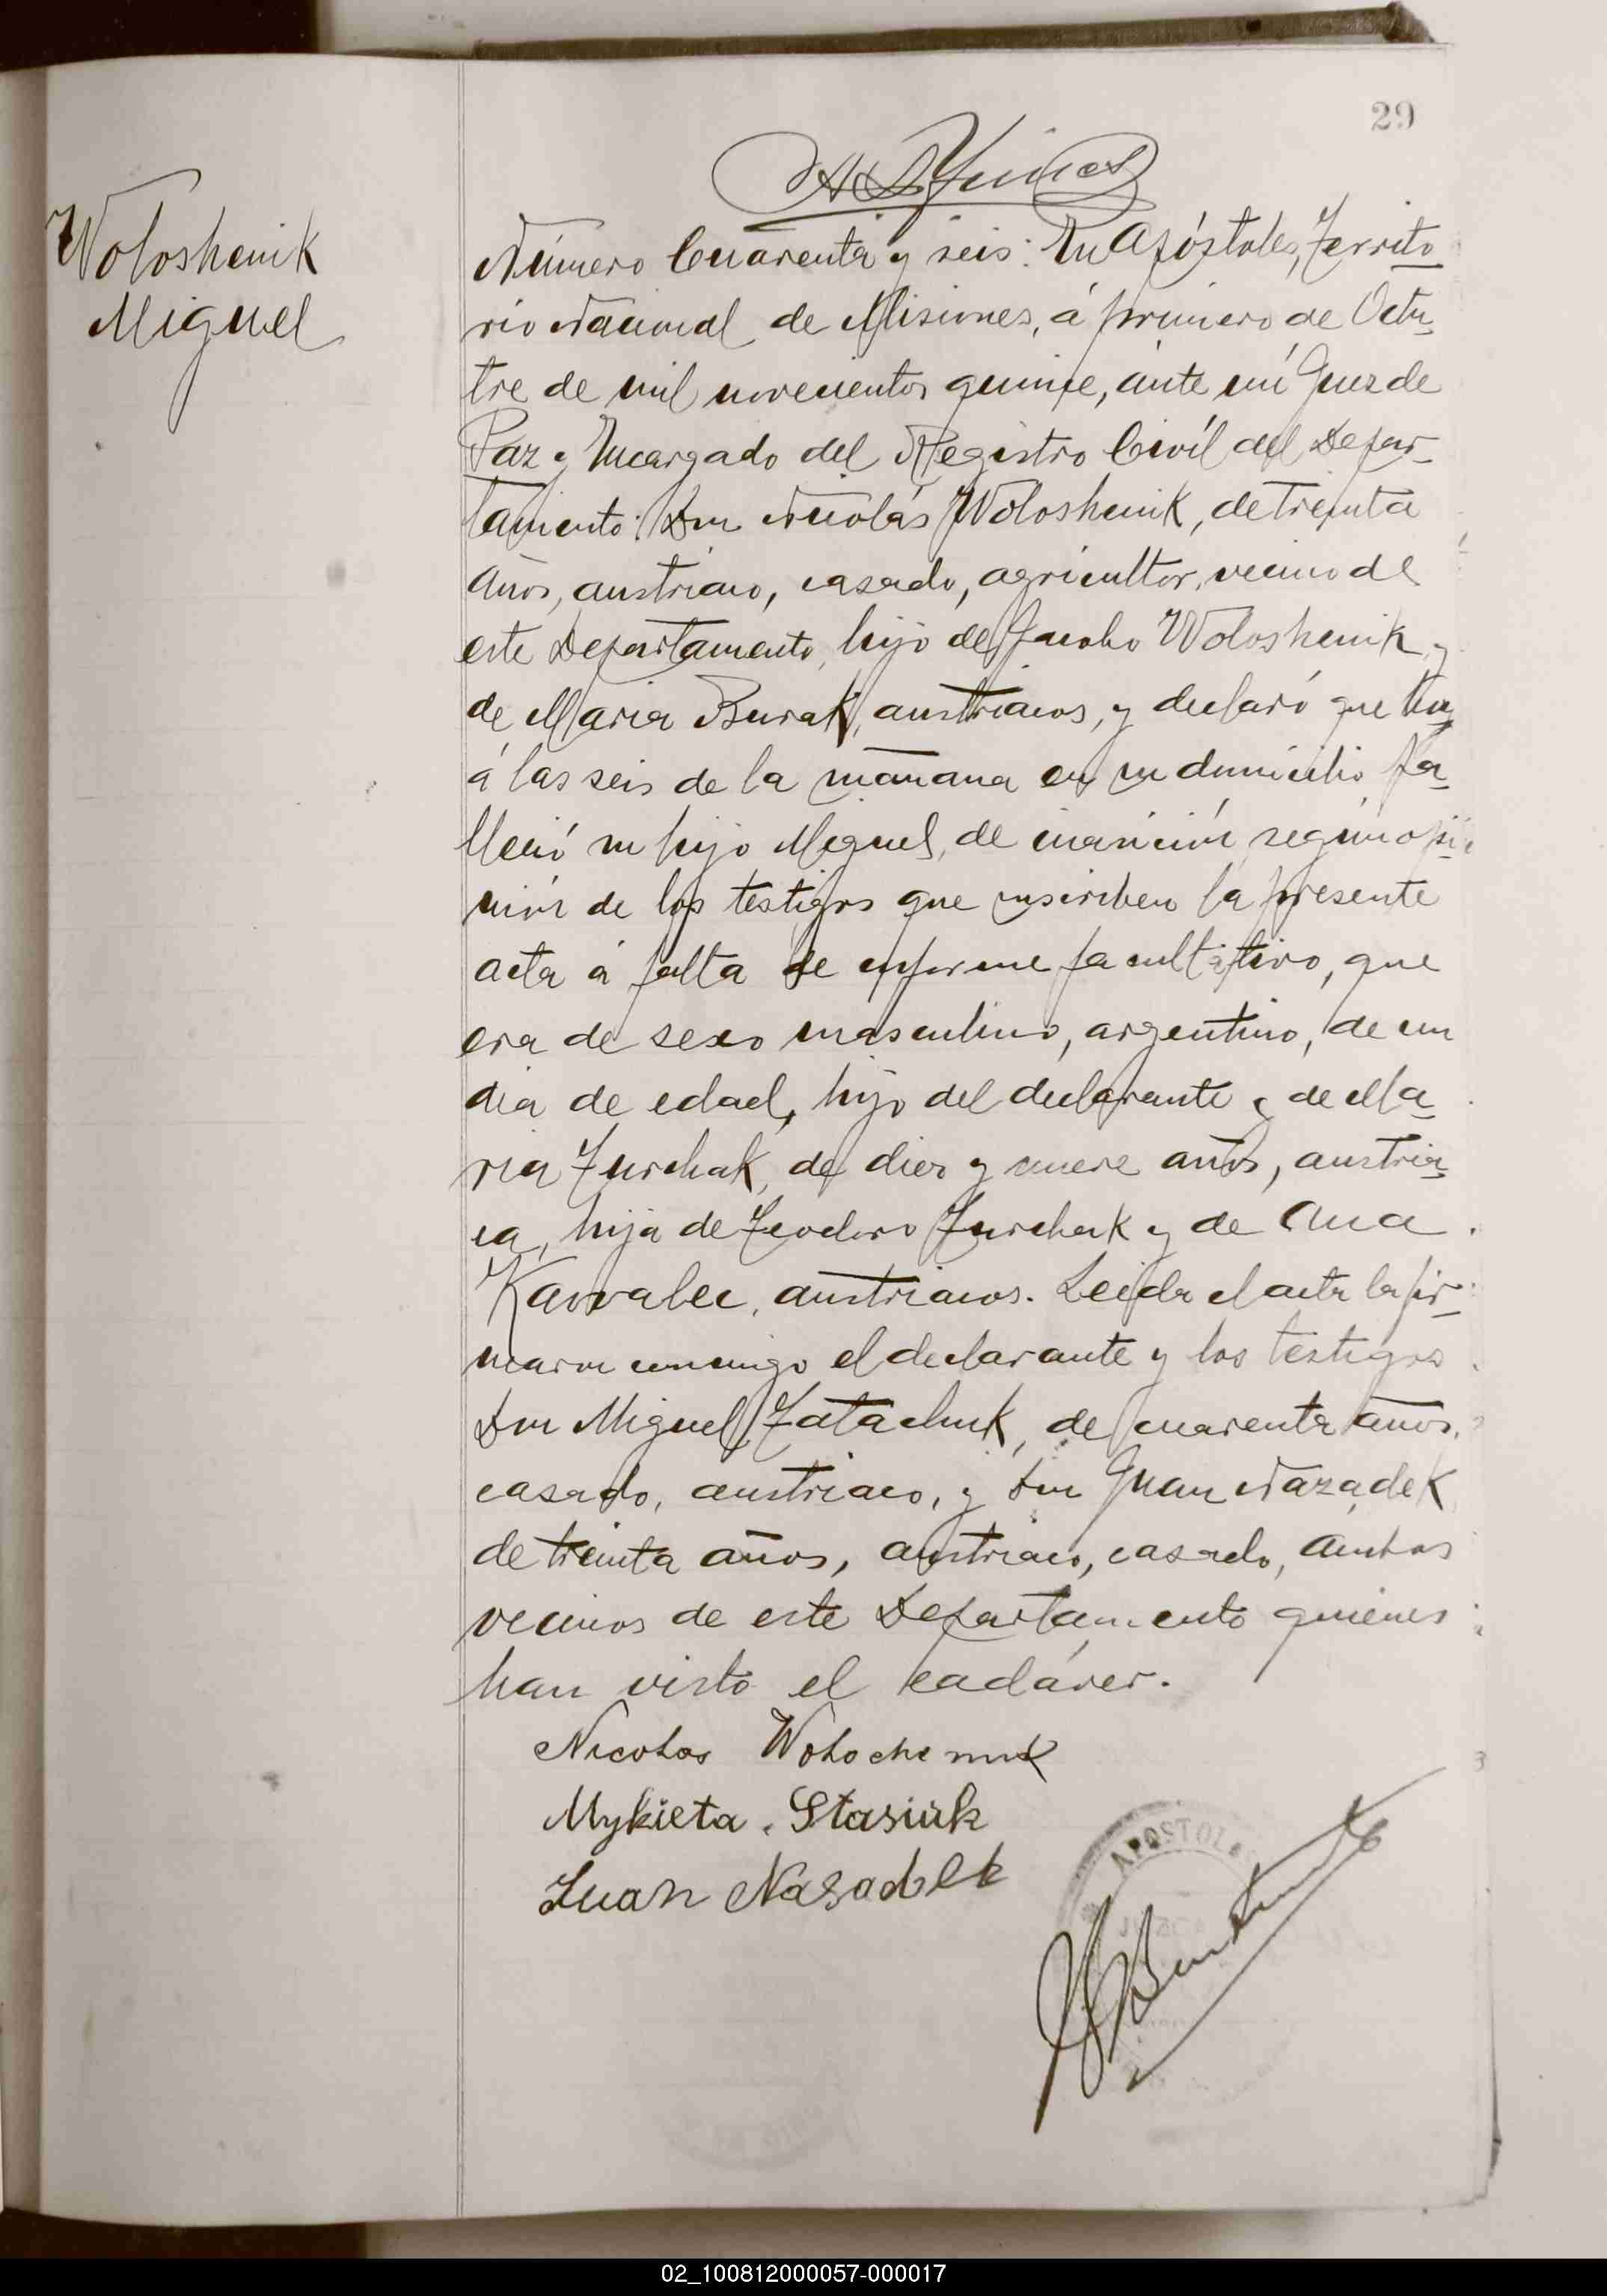 29
Woloshenik
Miguel
Número Cuarenta y seis: En Apóstoles, Territo
rio Nacional de Misiones, á primero de Octu
bre de mil novecientos quince, ánte mí Juez de
Paz y Encargado del Registro Civíl del Depar-
tamento: Don Nicolás Woloshenik, de treinta
años, austriaco, casado, agricultor, vecino de
este Departamento, hijo de Jacobo Woloshenik, y
de Maria Burak, austriacos, y declaró que hoy
á las seis de la mañana en su domicilio fa-
lleció su hijo Miguel, de inanición según opi
nión de los testigos que suscriben la presente
acta á falta de informe facultativo, que
era de sexo masculino, argentino, de un
dia de edad, hijo del declarante y de Ma-
ria Zurchak, de diez y nueve años, austria-
ca, hija de Teodoro Zurchak y de Ana
Kawalec, austriacos. Leida el acta la fir-
maron conmigo el declarante y los testigos
Don Miguel Zatachuk, de cuarenta años,
casado, austriaco, y Don Juan Nazadek
de treinta años, austriaco, casado, ambos
vecinos de este Departamento quienes
han visto el cadáver.
Nicolas Wolochenuk
Mykieta. Stasiuk
Juan Nasadek
APOSTOL
02_100812000057-000017